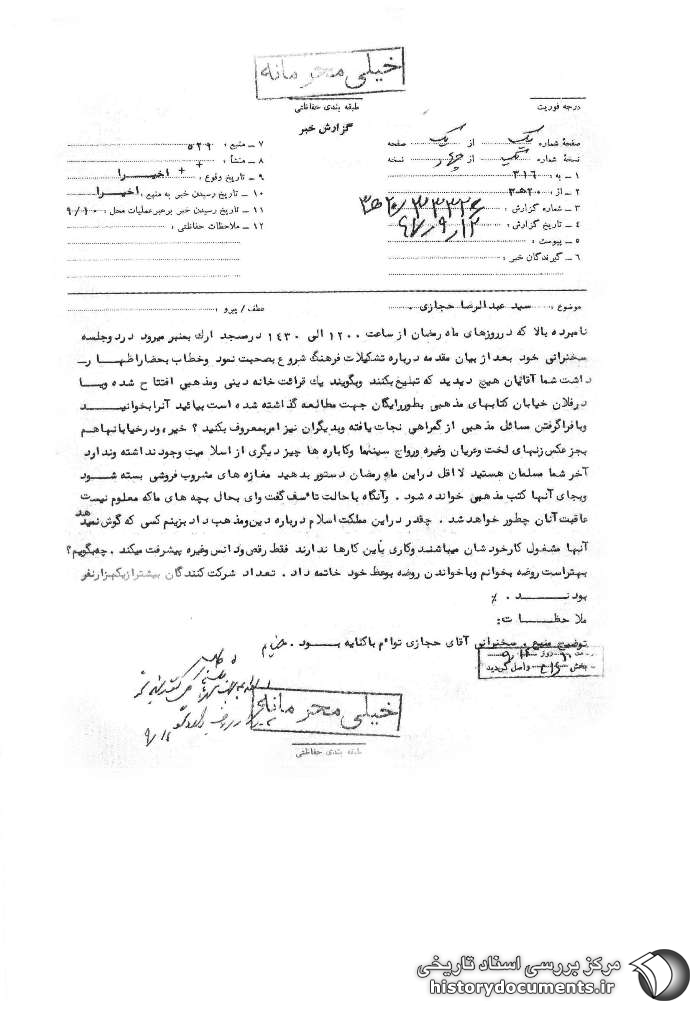 خیلی محرمانه
طبقه بندی حفاظتی
درجه فوریت
گزارش خبر
صفحهٔ شماره یک از یک صفحه
نسخهٔ شماره یک از چهار نسخه
۱ ـ به : ۳۱۶
۲ ـ از : ۲۰ ه‍ ۳
۳ ـ شماره گزارش :
۴ ـ تاریخ گزارش :
۵ ـ پیوست :
۶ ـ گیرندگان خبر :
۷ ـ منبع : ۵۲۹
۸ ـ منشأ : +
۹ ـ تاریخ وقوع : + اخیرا
۱۰ ـ تاریخ رسیدن خبر به منبع : اخیرا
۱۱ ـ تاریخ رسیدن خبر برهبرعملیات محل : ۹/۱۰
۱۲ ـ ملاحظات حفاظتی :
موضوع : سید عبدالرضا حجازی .
عطف / پیرو :
نامبرده بالا که درروزهای ماه رمضان از ساعت ۱۲۰۰ الی ۱۴۳۰ درمسجد ارك بمنبر میرود دردوجلسه
سخنرانی خود بعد از بیان مقدمه درباره تشکیلات فرهنگ شروع بصحبت نمود وخطاب بحضاراظهار
داشت شما آقایان هیچ دیدید که تبلیغ بکنند وبگویند یك قرائت خانه دینی ومذهبی افتتاح شده ویا
درفلان خیابان کتابهای مذهبی بطوررایگان جهت مطالعه گذاشته شده است بیائید آنرا بخوانید
وبافراگرفتن مسائل مذهبی از گمراهی نجات یافته وبدیگران نیز امربمعروف بکنید ؟ خیر ، ودرخیابانهاهم
بجزعکس زنهای لخت وعریان وغیره ورواج سینما وکاباره ها چیز دیگری از اسلامیت وجودنداشته وندارد
آخر شما مسلمان هستید لااقل دراین ماه رمضان دستور بدهید مغازه های مشروب فروشی بسته شود
وبجای آنها کتب مذهبی خوانده شود . وآنگاه باحالت تأسف گفت وای بحال بچه های ماکه معلوم نیست
عاقبت آنان چطور خواهدشد . چقدر دراین مملکت اسلام درباره دین‌ومذهب داد بزنیم کسی که گوش نمیدهد
آنها مشغول کارخودشان میباشند وکاری باین کارها ندارند فقط رقص ودانس وغیره پیشرفت میکند . چه‌بگویم؟
بهتراست روضه بخوانم وباخواندن روضه بوعظ خود خاتمه داد . تعداد شرکت کنندگان بیشترازیکهزارنفر
بودند . ٪
ملاحظات :
توضیح منبع . سخنرانی آقای حجازی توأم باکنایه بود .
روز
بخش واصل گردید
خیلی محرمانه
طبقه بندی حفاظتی
مرکز بررسی اسناد تاریخی
historydocuments.ir